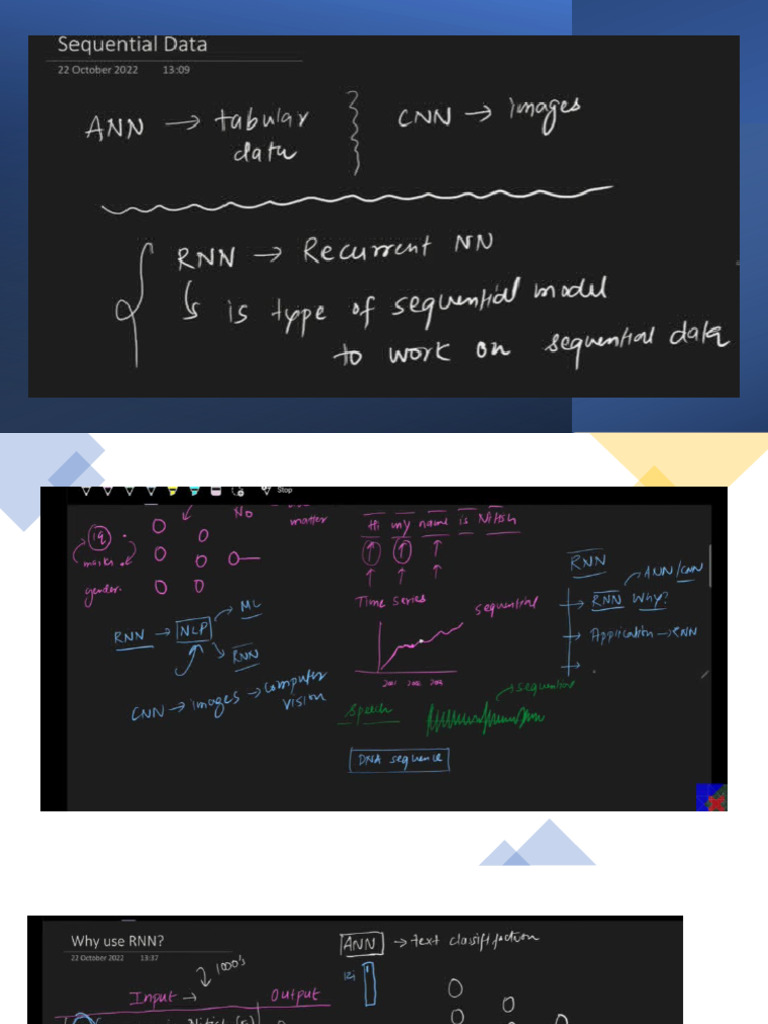 Sequential Data
22 October 2022 13:09
ANN → tabular data
CNN → images
RNN → Recurrent NN
↳ is type of sequential model
to work on sequential data
Stop
No
matter
iq
marks
gender.
Hi my name is Nitish
RNN → NLP → ML
RNN
CNN → images → computer vision
Time series
sequential
2001 2002 2003
Speech
→ sequential
DNA sequence
RNN
ANN/CNN
→ RNN Why?
→ Application → RNN
→
Why use RNN?
22 October 2022 13:37
1000's
Input → Output
ANN → text classification